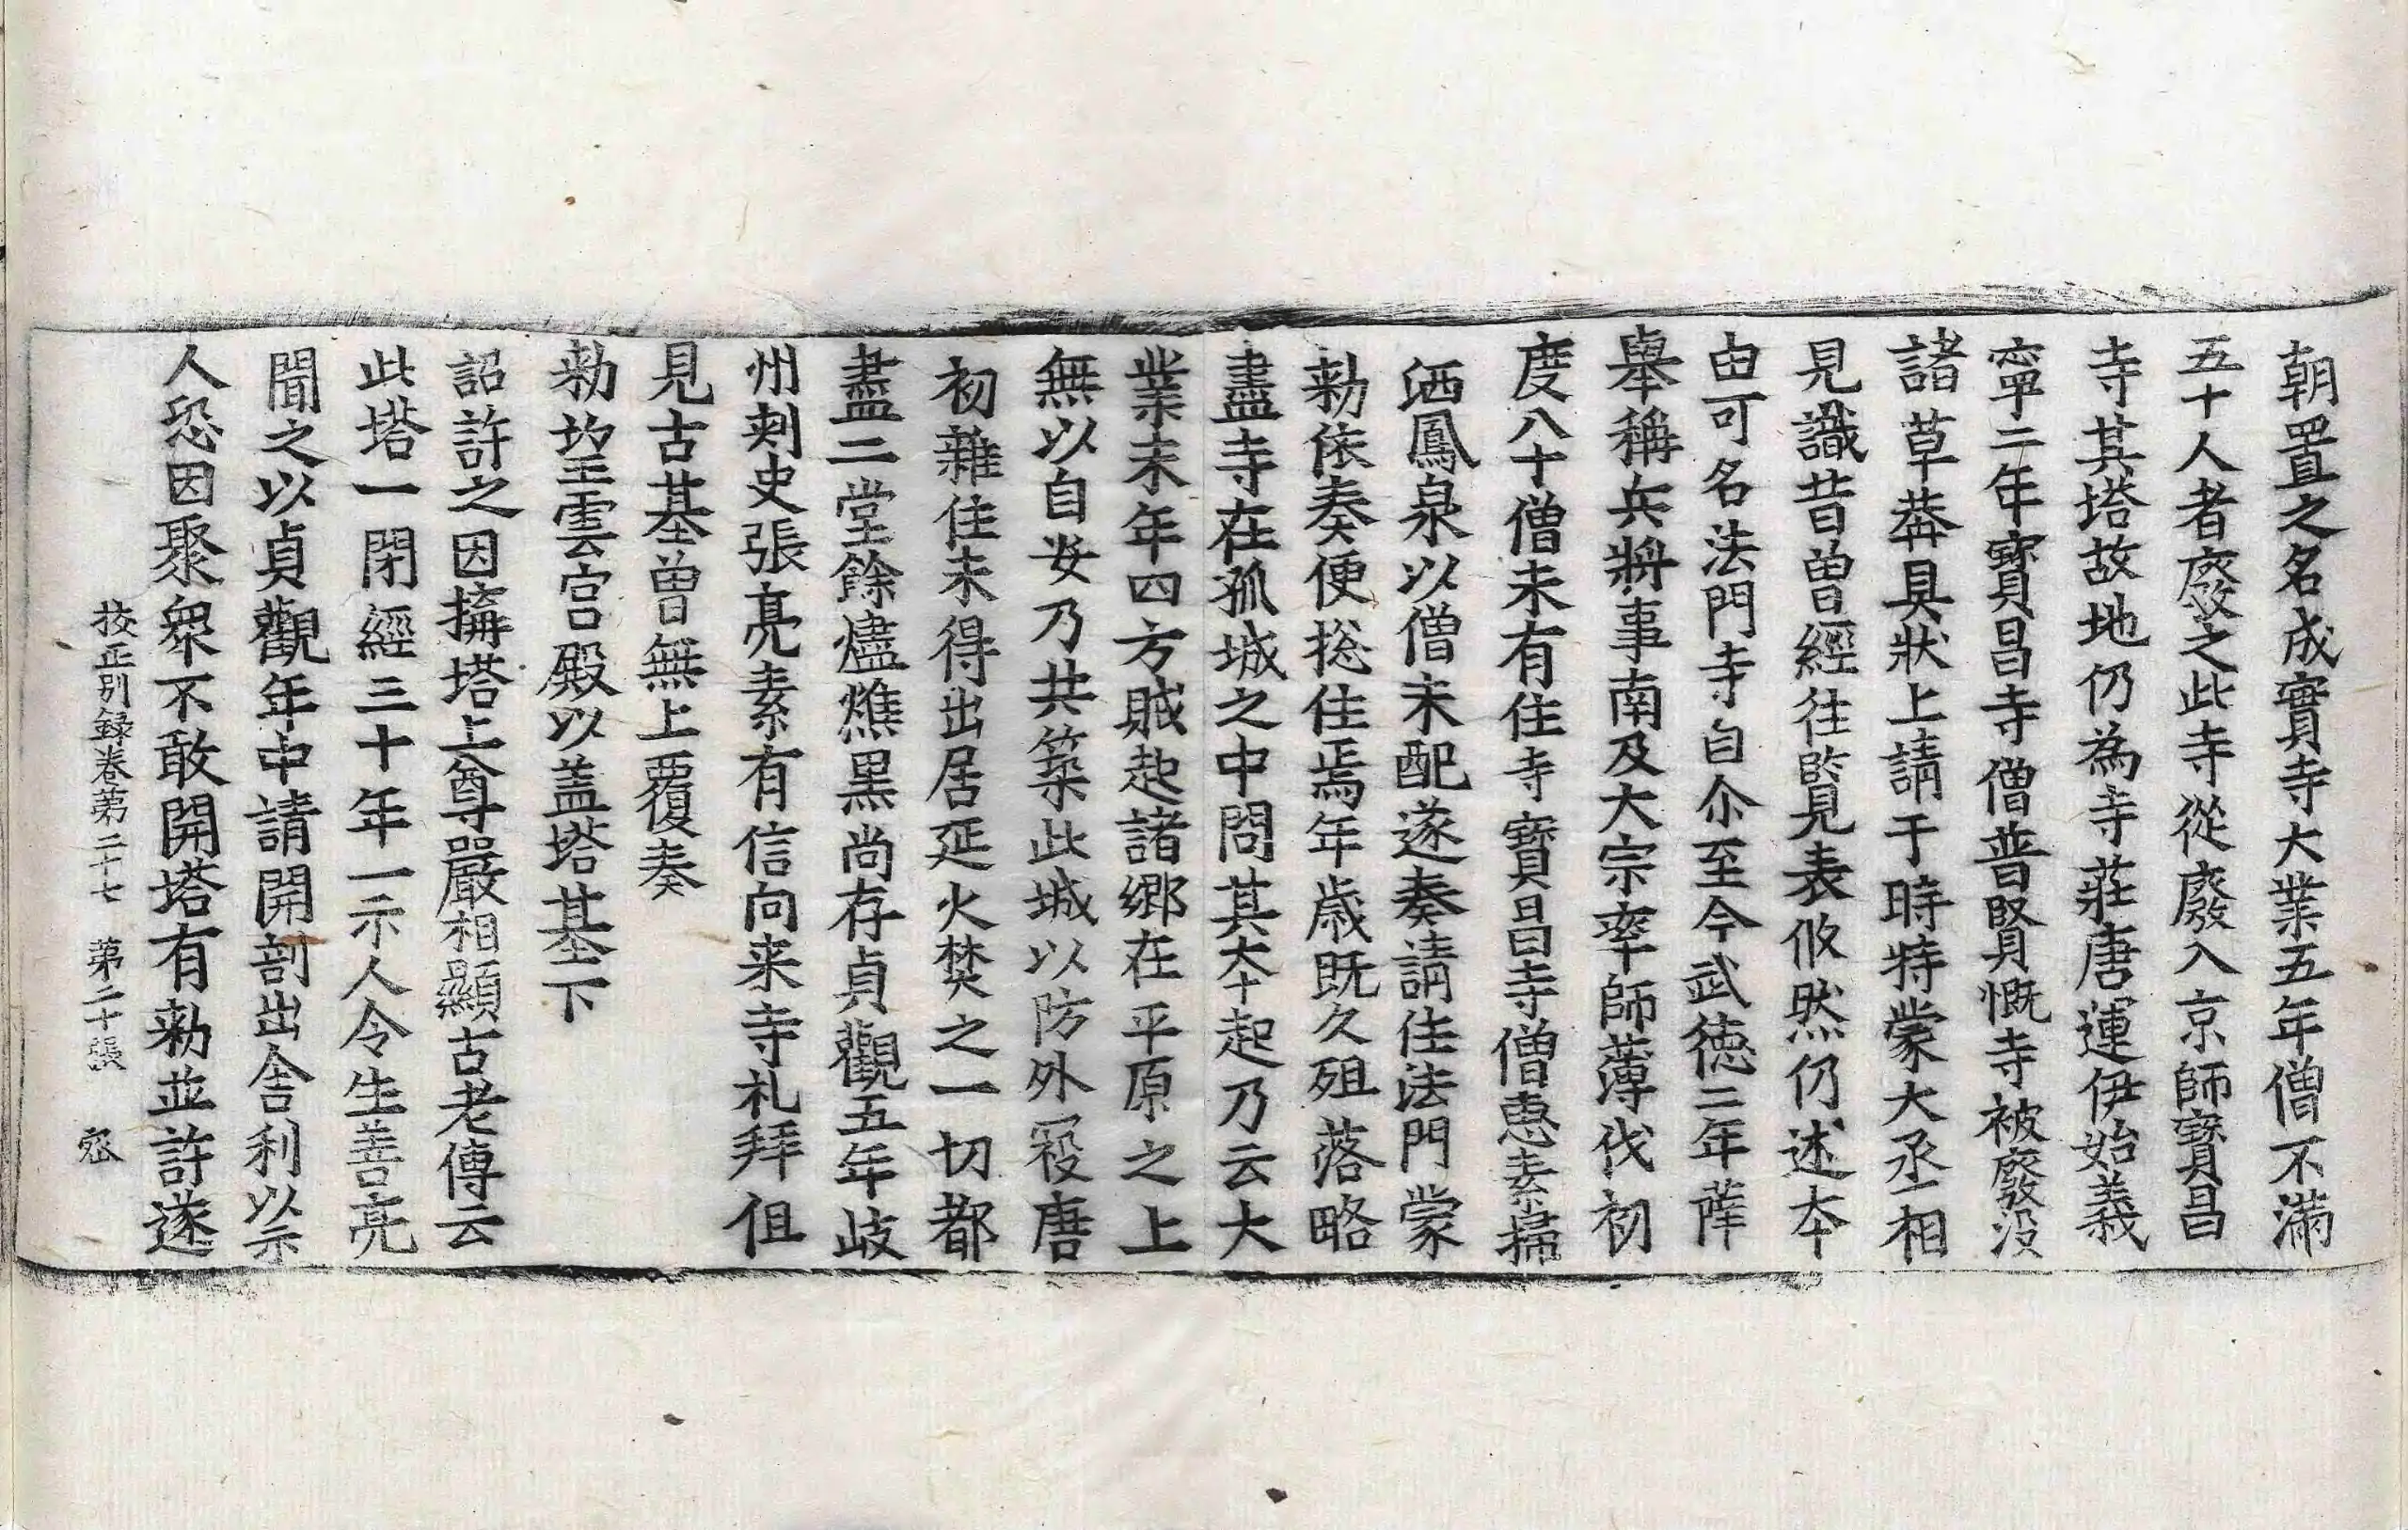 朝置之名成實寺大業五年僧不滿
五十人者廢之此寺從廢入京師寶昌
寺其塔故地仍為寺莊唐運伊始義
寧二年寶昌寺僧普賢慨寺被廢沒
諸草莽具狀上請于時特蒙大丞相
見識昔曾經往覧見表攸然仍述本
由可名法門寺自尒至今武德二年薛
舉稱兵將事南及大宗率師薄伐初
度八十僧未有住寺寶昌寺僧惠素掃
洒鳳泉以僧未配遂奏請住法門蒙
勑依奏便捴住焉年歳既久殂落略
盡寺在孤城之中問其本起乃云大
業末年四方賊起諸鄉在平原之上
無以自安乃共築此城以防外冦唐
初雜住未得出居延火焚之一切都
盡二堂餘燼燋黒尚存貞觀五年岐
州刾史張亮素有信向来寺礼拜伹
見古基曾無上覆奏
勑㘭望雲宮殿以盖塔基下
詔許之因擗塔上尊嚴相顯古老傳云
此塔一閉經三十年一示人令生善亮
聞之以貞觀年中請開剖出舎利以示
人恐因聚衆不敢開塔有勑並許遂
挍正別録卷苐二十七　苐二十張　宻